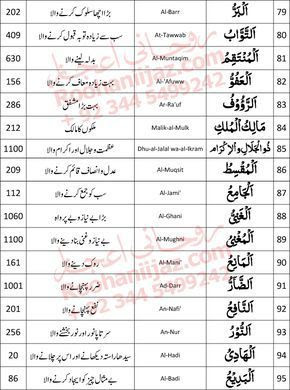 202 بڑا اچھا سلوک کرنے والا Al-Barr اَلْبَرُّ 79
409 سب سے زیادہ توبہ قبول کرنے والا At-Tawwab اَلتَّوَّابُ 80
630 بدلہ لینے والا Al-Muntaqim اَلْمُنْتَقِمُ 81
156 بہت زیادہ معاف کرنے والا Al-'Afuww اَلْعَفُوُّ 82
286 بہت بڑا مشفق Ar-Ra'uf اَلرَّؤُوْفُ 83
212 ملکوں کا مالک Malik-al-Mulk مَالِكُ الْمُلْكِ 84
1100 عظمت و جلال اور اکرام والا Dhu-al-Jalal wa-al-Ikram ذُوالْجَلَالِ وَالْاِكْرَامِ 85
209 عدل و انصاف قائم کرنے والا Al-Muqsit اَلْمُقْسِطُ 86
سب کو جمع کرنے والا Al-Jami' اَلْجَامِعُ
1060 بڑا بے نیاز و بے پرواہ Al-Ghani اَلْغَنِيُّ
1100 بے نیاز و غنی بنا دینے والا Al-Mughni اَلْمُغْنِيُ
161 روک دینے والا Al-Mani' اَلْمَانِعُ 90
1001 ضرر پہنچانے والا Ad-Darr اَلضَّارُّ 91
201 نفع پہنچانے والا An-Nafi' اَلنَّافِعُ 92
256 سر تا پا نور اور نور بخشنے والا An-Nur اَلنُّوْرُ 93
20 سیدھا راستہ دکھانے اور اس پر چلانے والا Al-Hadi اَلْهَادِيُ 94
86 بے مثال چیز کو ایجاد کرنے والا Al-Badi اَلْبَدِيْعُ 95
روحانی اعجاز
Rohaniijaz.com
+92 344 5499242